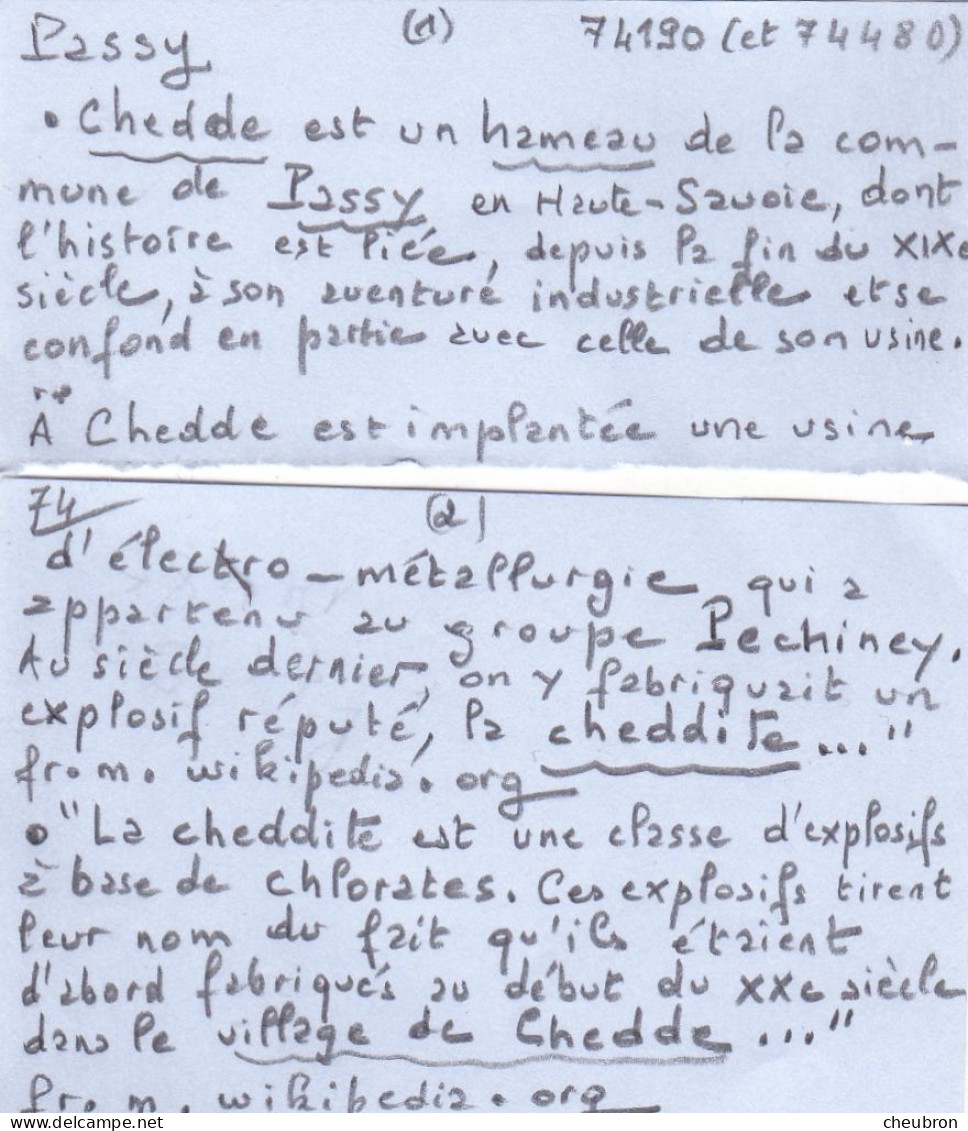 Passy (1) 74190 (et 74480)
• Chedde est un hameau de la com-
mune de Passy en Haute-Savoie, dont
l'histoire est liée, depuis la fin du XIXe
siècle, à son aventure industrielle et se
confond en partie avec celle de son usine.
À Chedde est implantée une usine
74 (2)
d'électro-métallurgie qui a
appartenu au groupe Pechiney.
Au siècle dernier, on y fabriquait un
explosif réputé, la cheddite..."
fr.m.wikipedia.org
• "La cheddite est une classe d'explosifs
à base de chlorates. Ces explosifs tirent
leur nom du fait qu'ils étaient
d'abord fabriqués au début du XXe siècle
dans le village de Chedde..."
fr.m.wikipedia.org
cheubron